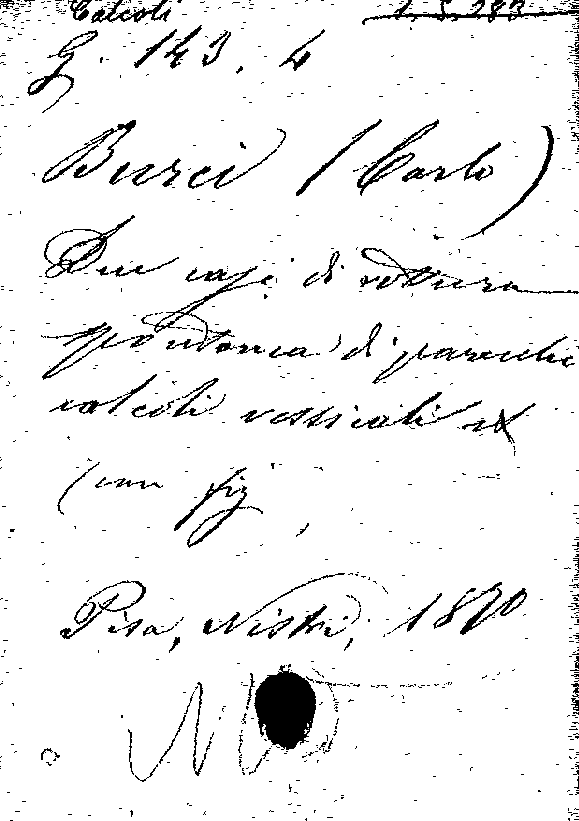 Calcoli 1. 3. 283
G. 143. 4
Burci (Carlo)
Due casi di rottura
spontanea di parecchi
calcoli vessicali
(con fig
Pisa, Nistri, 1870